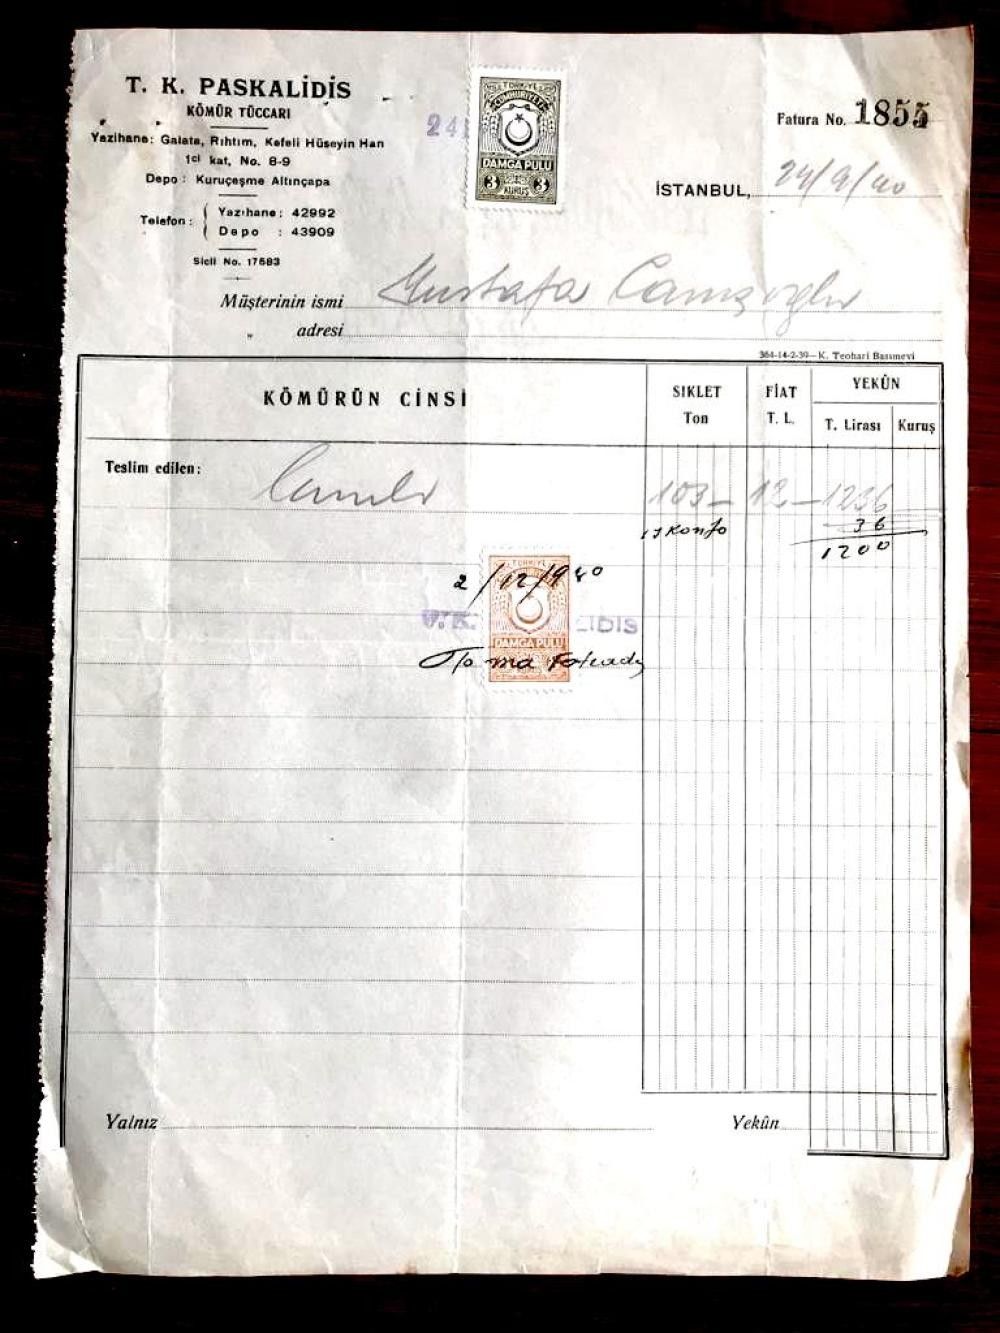 T. K. PASKALİDİS
KÖMÜR TÜCCARI
Yazıhane: Galata, Rıhtım, Kefeli Hüseyin Han
1ci kat, No. 8-9
Depo : Kuruçeşme Altınçapa
Telefon : Yazıhane : 42992
Depo : 43909
Sicil No. 17583
241
TÜRKİYE
CUMHURİYETİ
DAMGA PULU
3 3
KURUŞ
Fatura No. 1855
İSTANBUL, 24/9/40
Müşterinin ismi Mustafa
„ adresi
364-14-2-39— K. Teohari Basımevi
KÖMÜRÜN CİNSİ
SIKLET
Ton
FİAT
T. L.
YEKÛN
T. Lirası Kuruş
Teslim edilen:
103— 12— 1236
iskonto 36
1200
2/12/940
LIDIS
DAMGA PULU
Yalnız
Yekûn